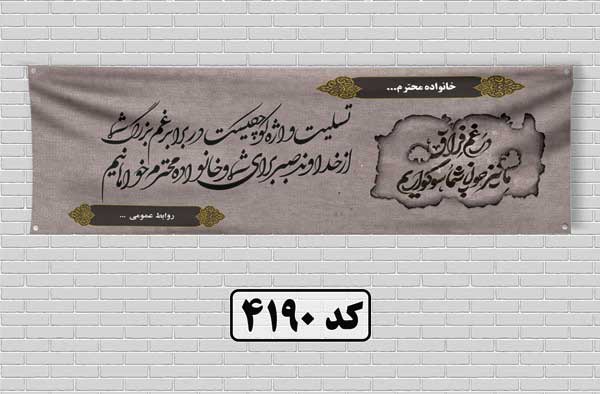 خانواده محترم...
در غم فراق
ما نیز چون شما سوگواریم
تسلیت واژه کوچکیست در برابر غم بزرگ شما
از خداوند صبر برای شما و خانواده محترم خواهانیم
روابط عمومی ...
کد ۴۱۹۰